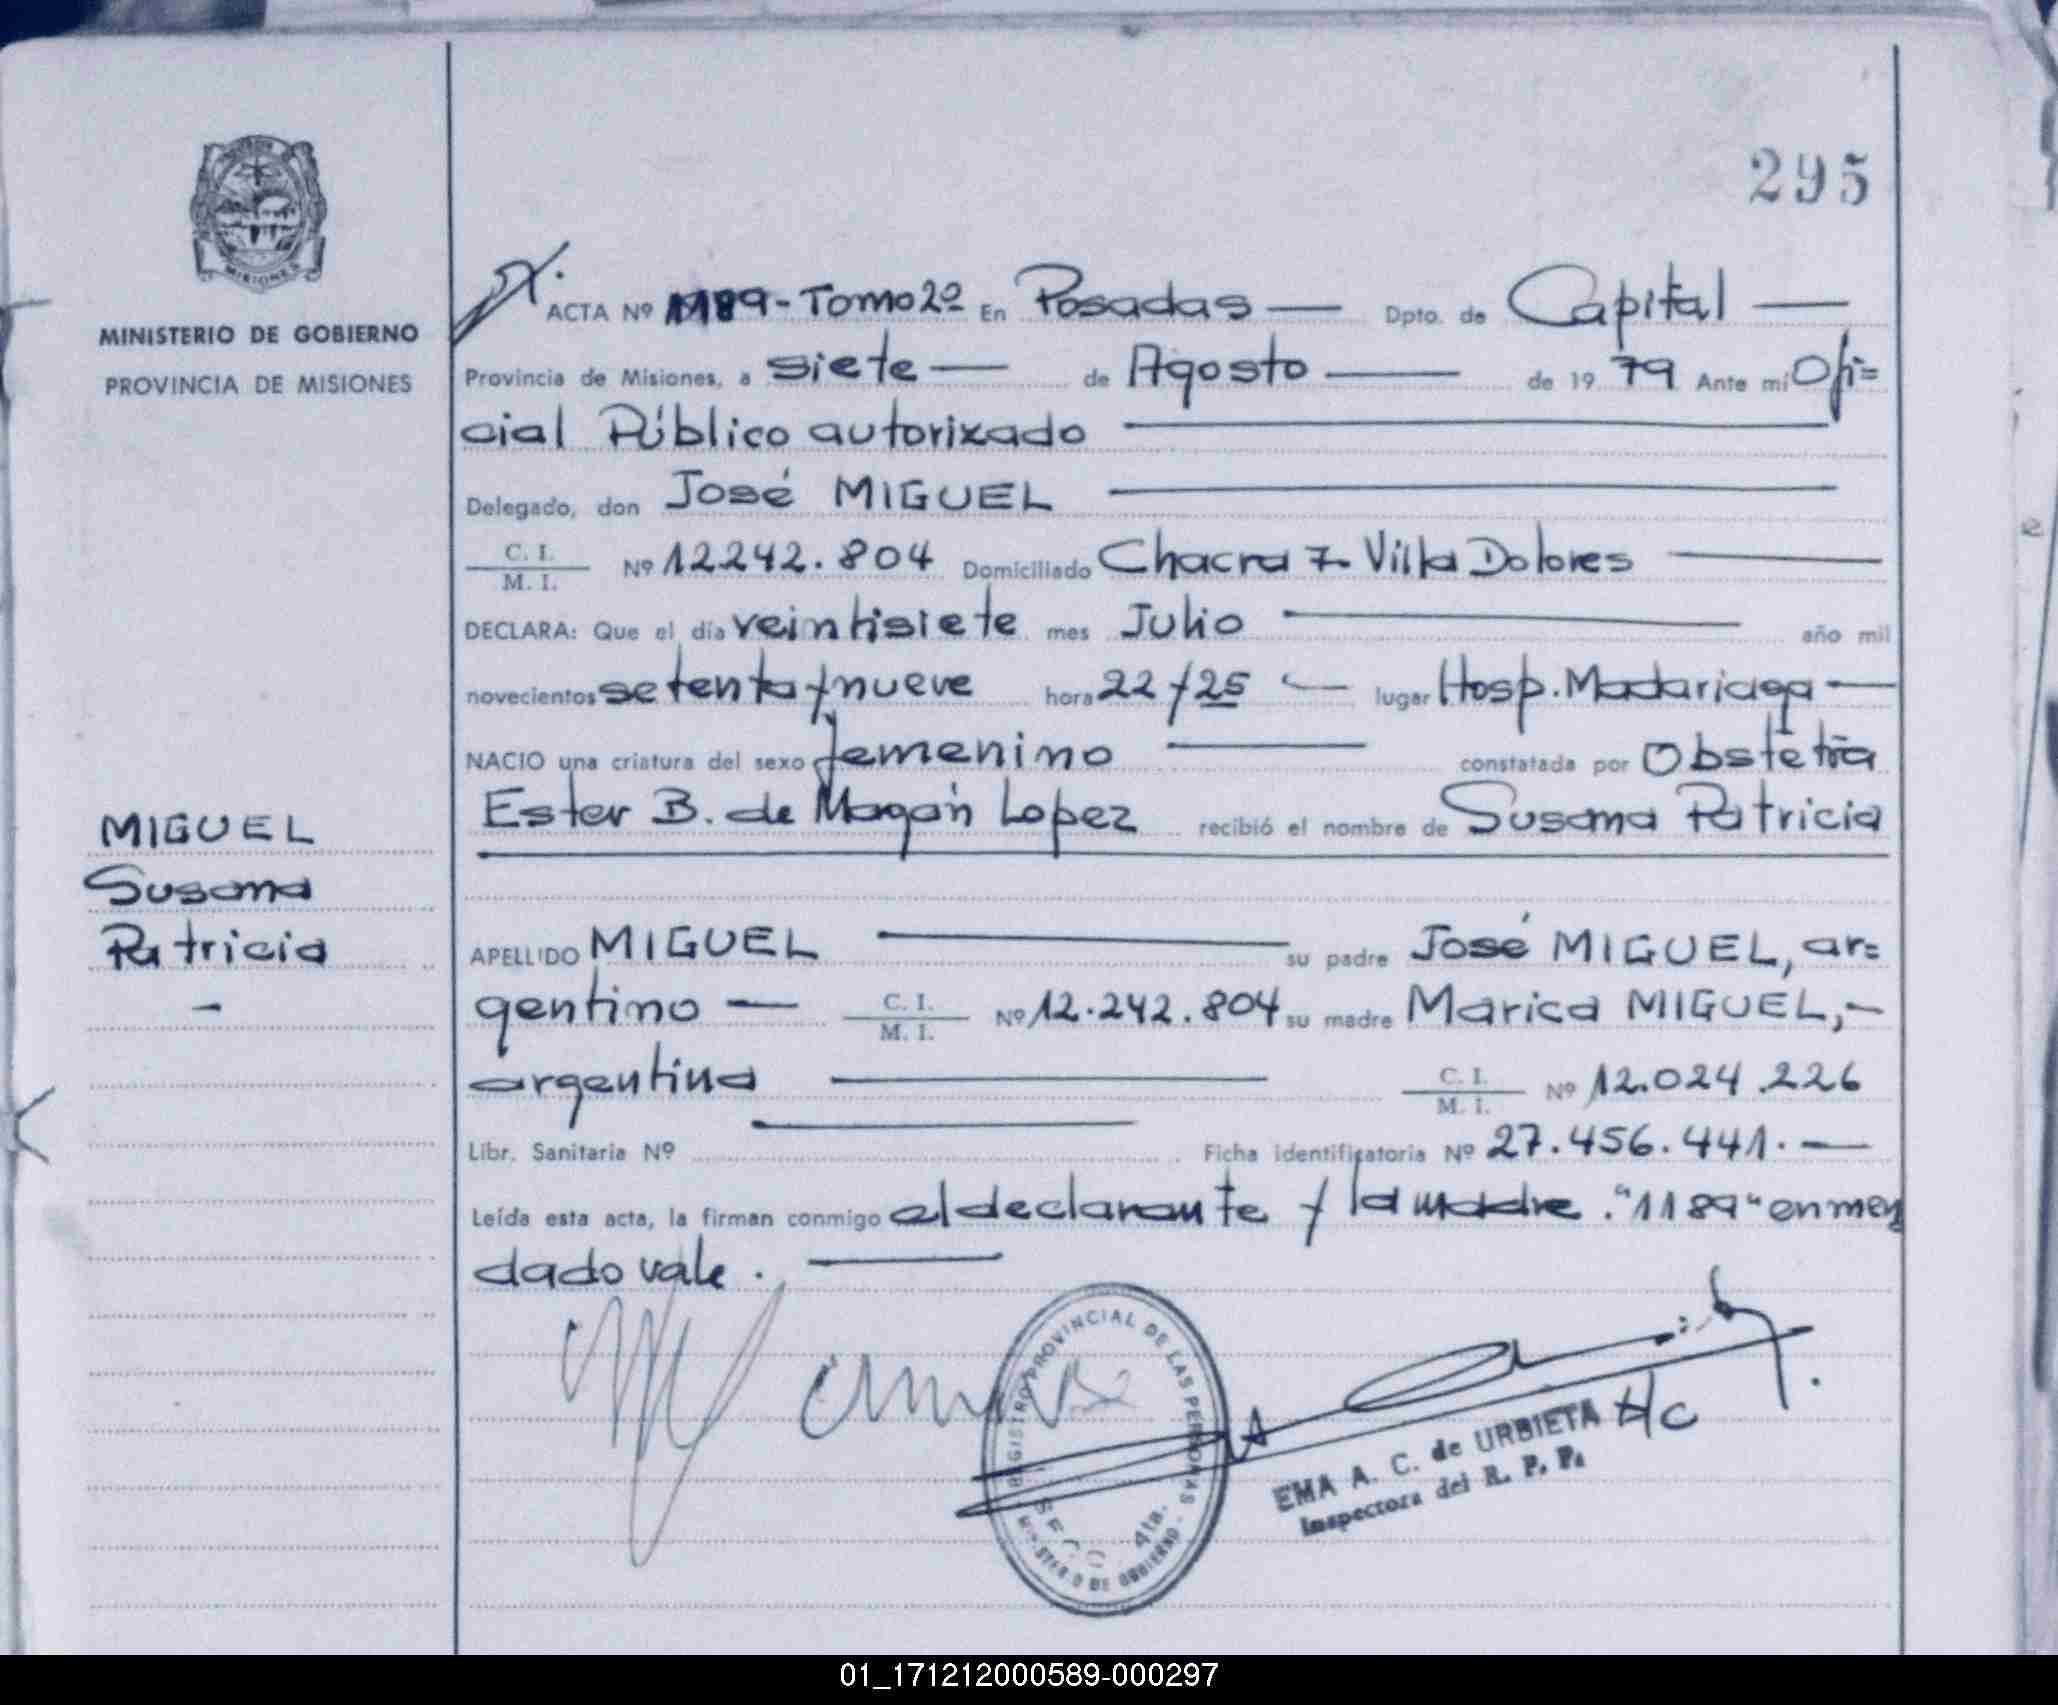 295
MISIONES
MINISTERIO DE GOBIERNO
PROVINCIA DE MISIONES
ACTA Nº 1189 - Tomo 2º En Posadas — Dpto. de Capital —
Provincia de Misiones, a siete — de Agosto — de 19 79 Ante mi Ofi=
cial Público autorizado —
Delegado, don José MIGUEL —
C. I. / M. I. Nº 12242.804 Domiciliado Chacra 7- Villa Dolores —
DECLARA: Que el día veintisiete mes Julio — año mil
novecientos setenta y nueve hora 22 y 25 — lugar Hosp. Madariaga —
NACIO una criatura del sexo femenino — constatada por Obstetra
Ester B. de Magán Lopez recibió el nombre de Susana Patricia
MIGUEL
Susana
Patricia
-
APELLIDO MIGUEL — su padre José MIGUEL, ar=
gentino — C. I. / M. I. Nº 12.242.804 su madre Marica MIGUEL,-
argentina — C. I. / M. I. Nº 12.024.226
Libr. Sanitaria Nº — Ficha identificatoria Nº 27.456.441. —
Leída esta acta, la firman conmigo el declarante y la madre. "1189" enmen
dado vale. —
REGISTRO PROVINCIAL DE LAS PERSONAS
SECC. 4ta.
DE GOBIERNO
EMA A. C. de URBIETA
Inspectora del R. P. P.
01_171212000589-000297